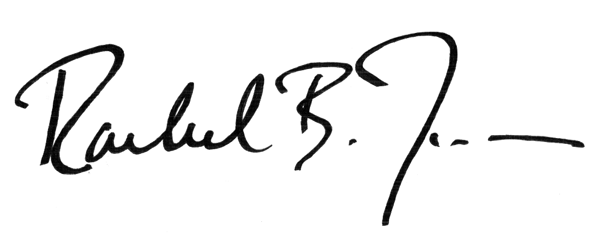 Rachel B.